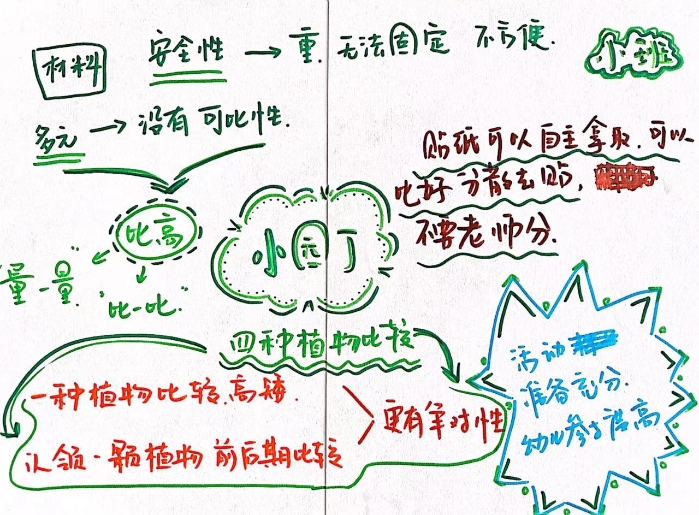 材料 安全性 → 重 无法固定 不方便.
小班
多元 → 没有可比性.
贴纸可以自主拿取.可以
比好分散去贴,
不要老师分.
比高
"量一量" "比一比"
小园丁
四种植物比较
一种植物比较高矮.
认领一颗植物前后期比较
更有争对性
活动
准备充分.
幼儿参与度高